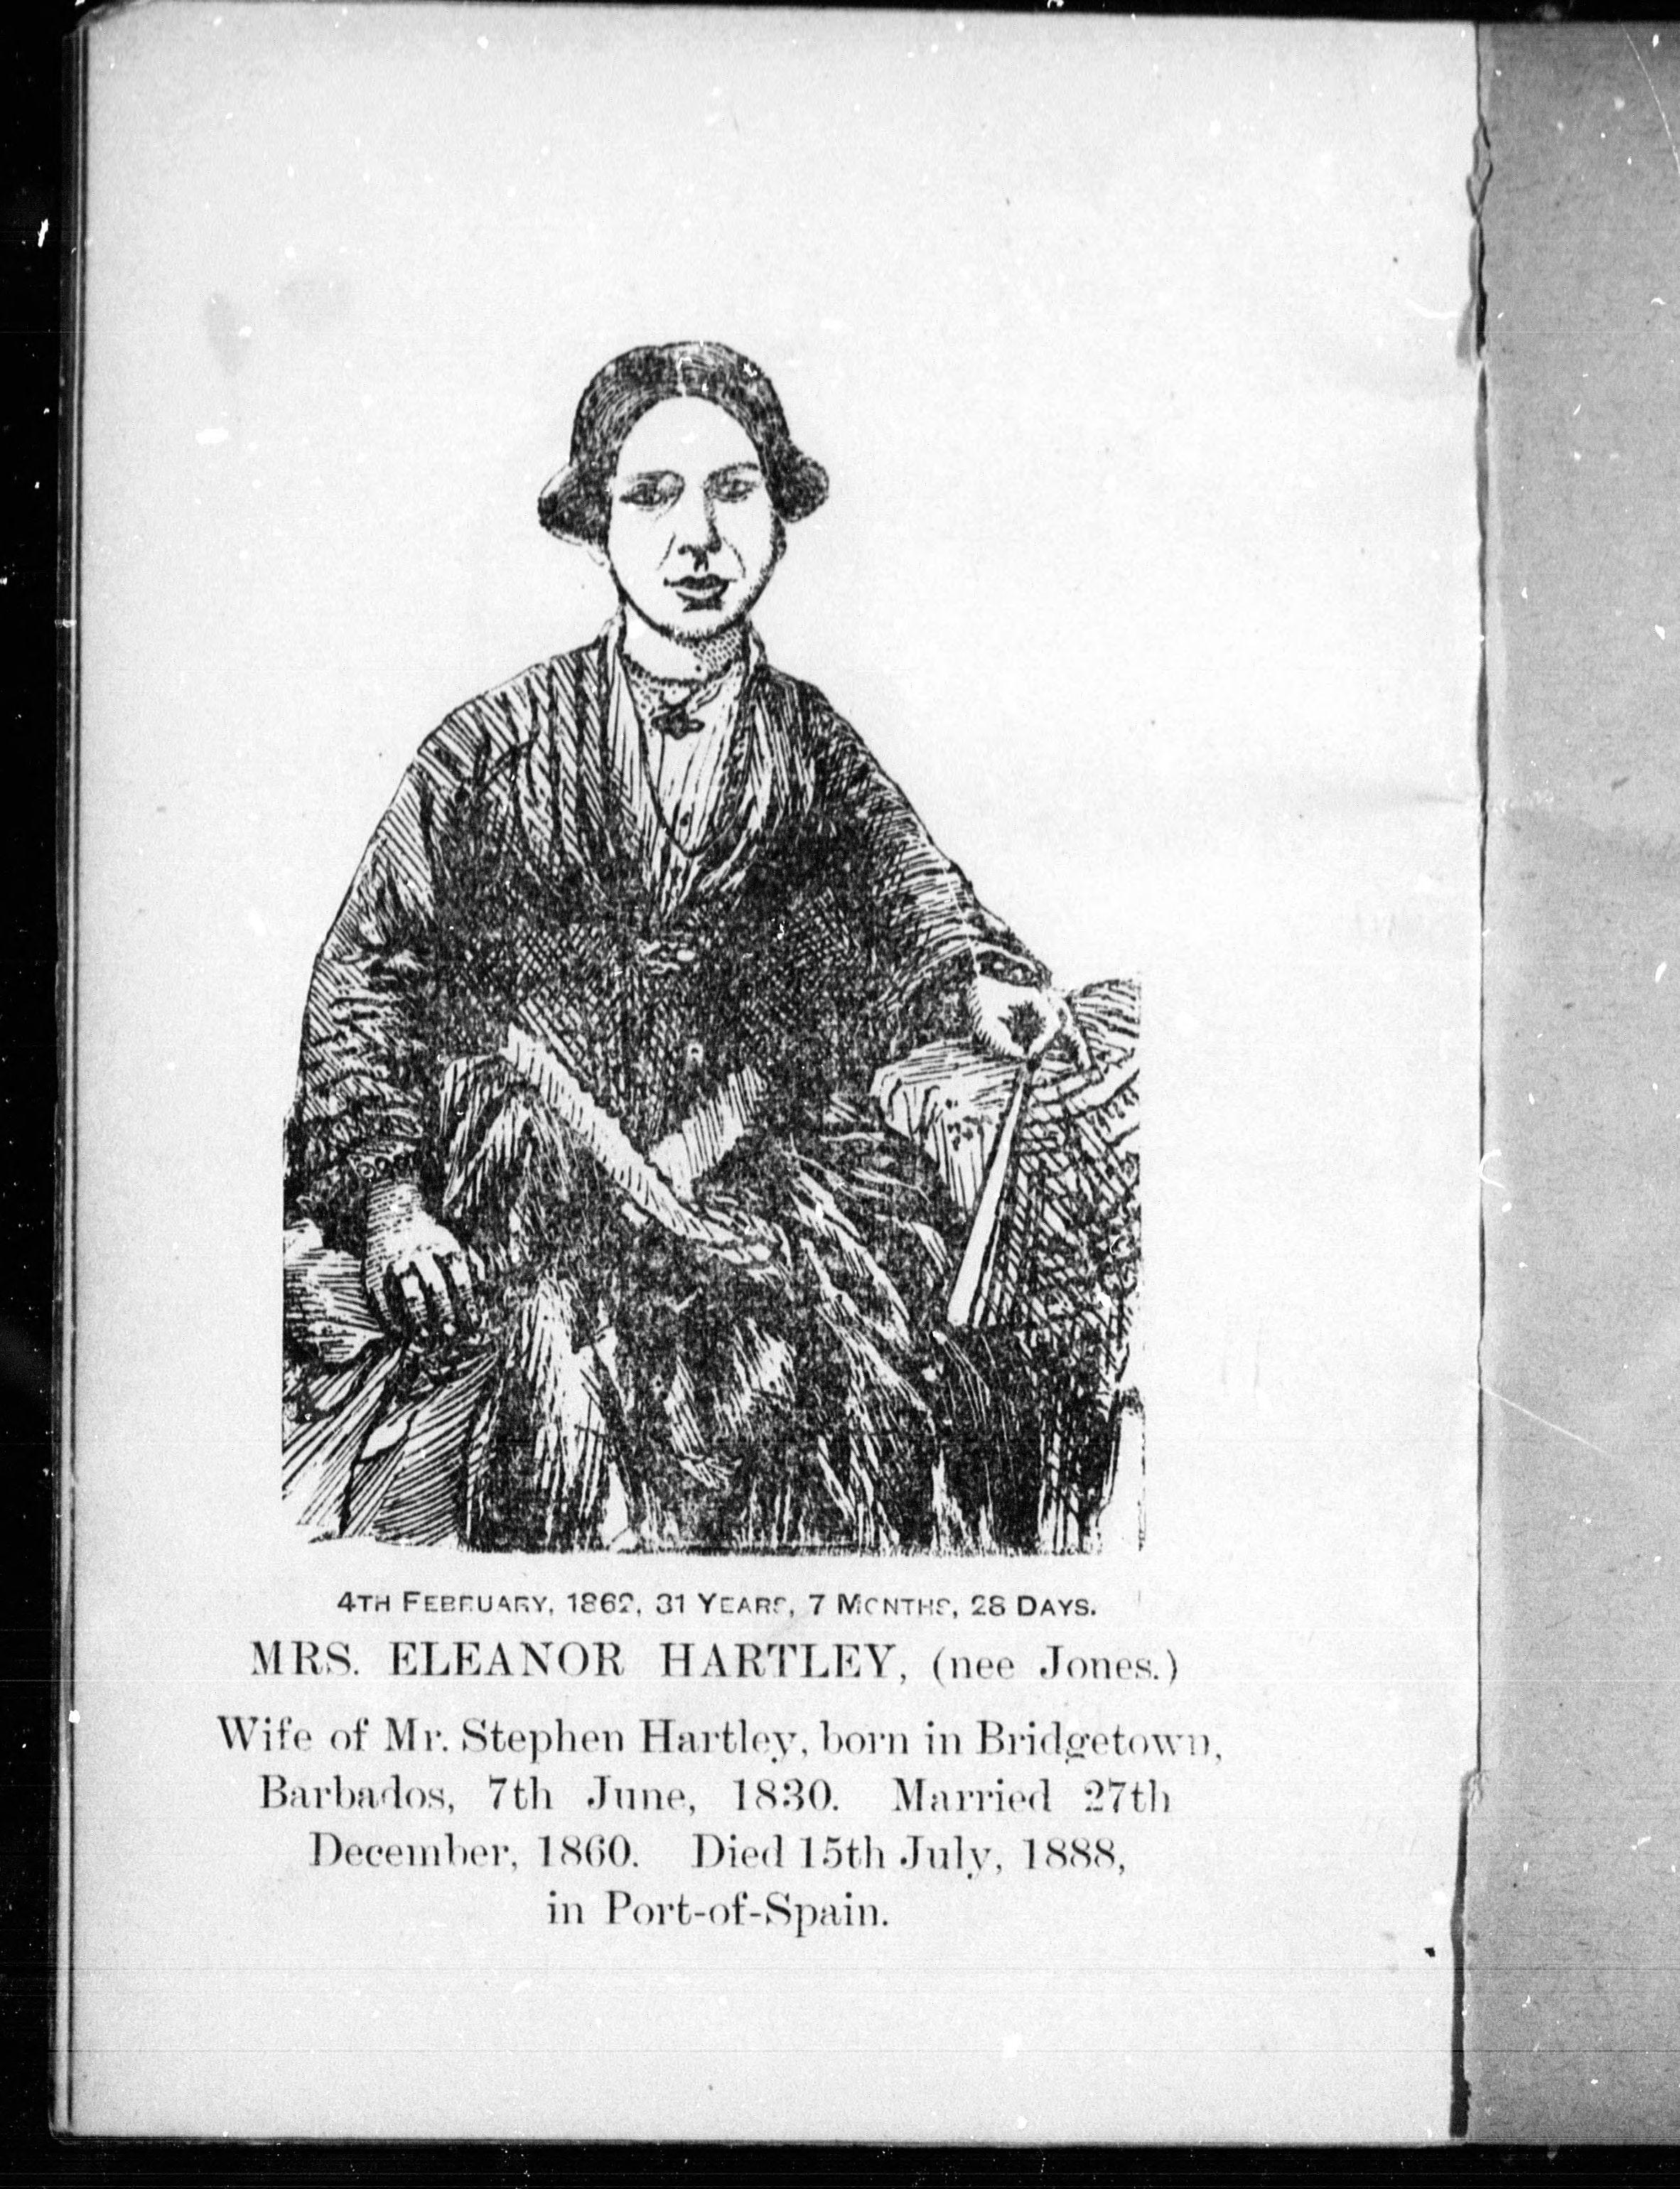 4TH FEBRUARY, 1862, 31 YEARS, 7 MONTHS, 28 DAYS.
MRS. ELEANOR HARTLEY, (nee Jones.)
Wife of Mr. Stephen Hartley, born in Bridgetown,
Barbados, 7th June, 1830. Married 27th
December, 1860. Died 15th July, 1888,
in Port-of-Spain.